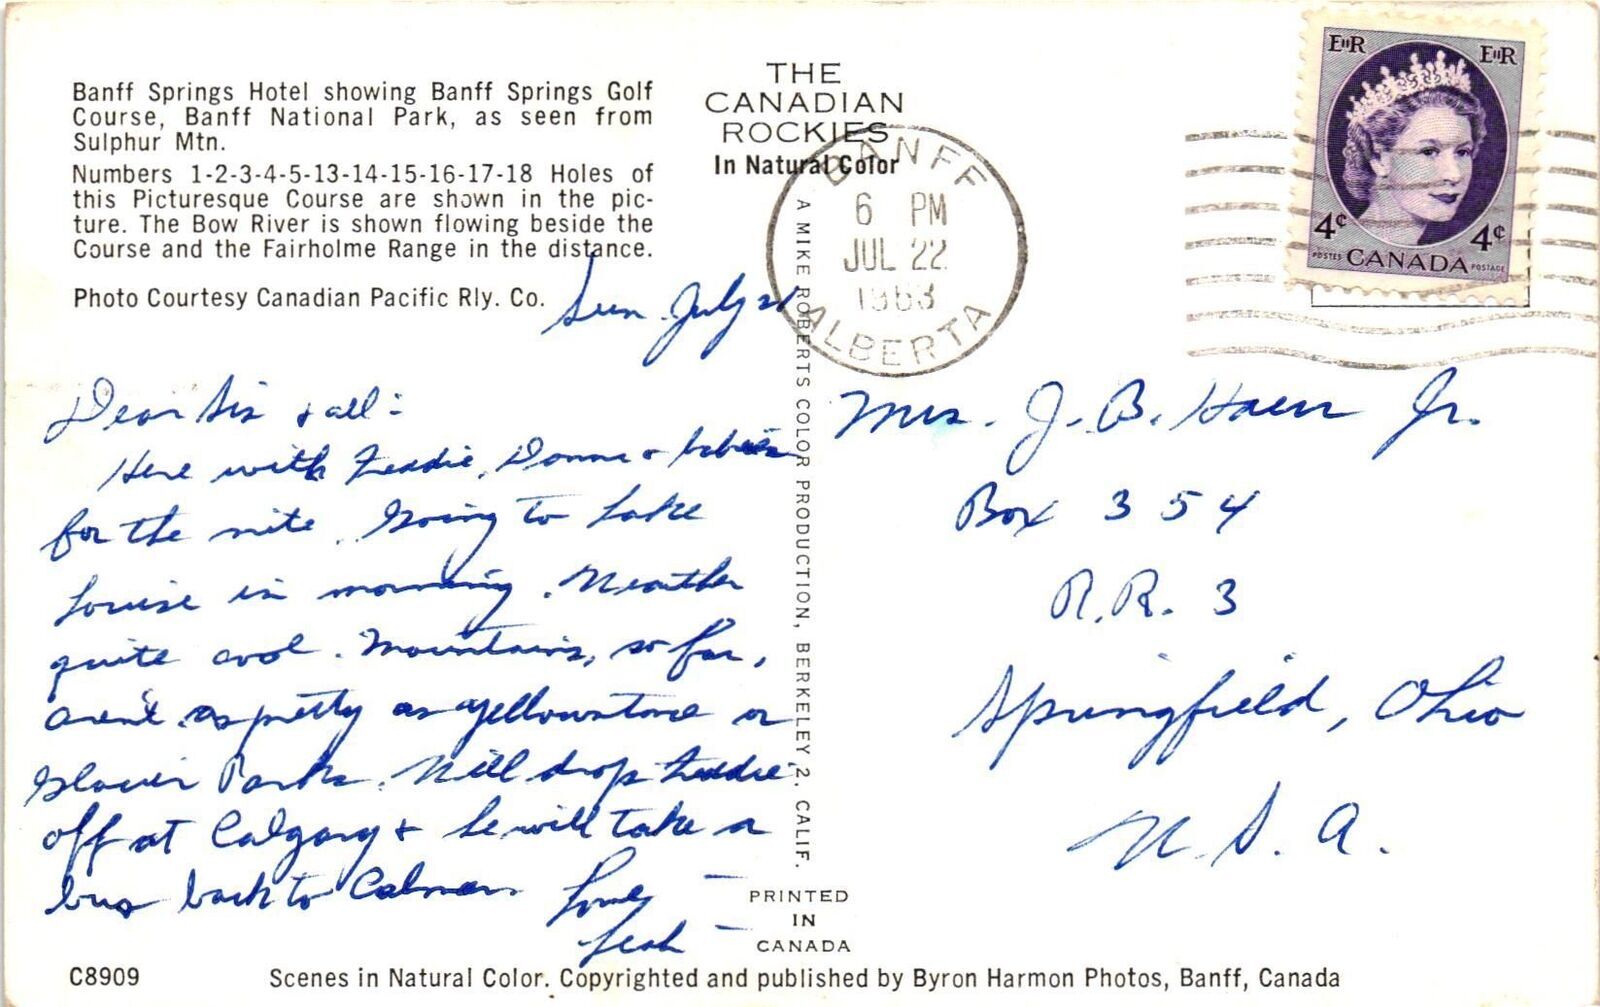 Banff Springs Hotel showing Banff Springs Golf
Course, Banff National Park, as seen from
Sulphur Mtn.
Numbers 1-2-3-4-5-13-14-15-16-17-18 Holes of
this Picturesque Course are shown in the pic-
ture. The Bow River is shown flowing beside the
Course and the Fairholme Range in the distance.
Photo Courtesy Canadian Pacific Rly. Co.
THE
CANADIAN
ROCKIES
In Natural Color
BANFF
6 PM
JUL 22
1963
ALBERTA
EIIR EIIR
4¢ 4¢
POSTES CANADA POSTAGE
Sun. July 21
Dear Sis & all:
Here with Freddie, Donna & babies
for the nite. Going to Lake
Louise in morning. Weather
quite cool. Mountains, so far,
aren't as pretty as Yellowstone or
Glacier Parks. Will drop Freddie
off at Calgary & he will take a
bus back to
Love,
Leah
Mrs. J. B. Jr.
Box 354
R.R. 3
Springfield, Ohio
U.S.A.
A MIKE ROBERTS COLOR PRODUCTION, BERKELEY 2, CALIF.
PRINTED
IN
CANADA
C8909
Scenes in Natural Color. Copyrighted and published by Byron Harmon Photos, Banff, Canada